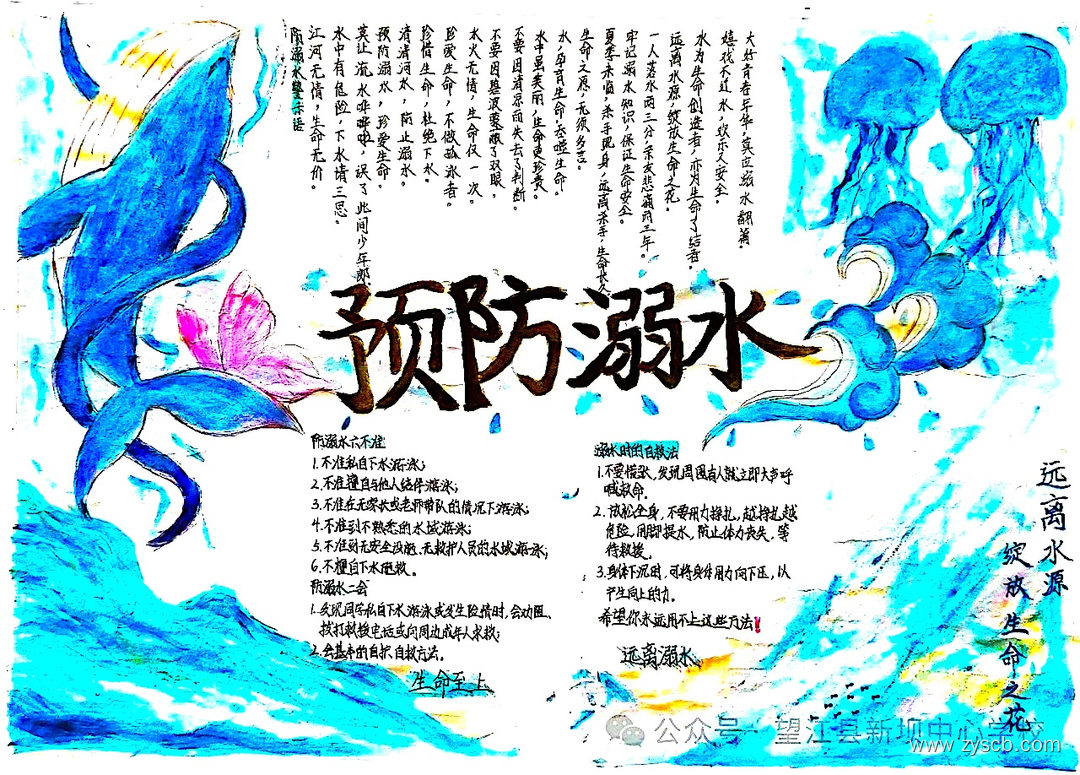 大好青春年华,莫应溺水翻篇。
嬉戏不赶水,欢乐又安全。
水为生命创造者,亦为生命了结者。
远离水源,绽放生命之花。
一人落水两三分,亲友悲痛两三年。
牢记溺水知识,保证生命安全。
夏季来临,杀手现身,远离杀手,生命长久
生命之愿,无须多言。
水,孕育生命,吞噬生命。
水中虽美丽,生命更珍贵。
不要因清凉而失去了判断。
不要因碧波蒙蔽了双眼,
水火无情,生命仅一次。
珍爱生命,不做孤泳者。
珍惜生命,杜绝下水。
清清河水,防止溺水。
预防溺水,珍爱生命。
莫让流水哗哗啦,误了此间少年郎
水中有危险,下水请三思。
江河无情,生命无价。
防溺水警示语
预防溺水
防溺水六不准
1.不准私自下水游泳;
2.不准擅自与他人结伴游泳;
3.不准在无家长或老师带队的情况下游泳;
4.不准到不熟悉的水域游泳;
5.不准到无安全设施、无救护人员的水域游泳;
6.不擅自下水施救。
防溺水二会
1.发现同学私自下水游泳或发生险情时,会劝阻、
拨打救援电话或向周边成年人求救;
2.会基本的自护、自救方法。
生命至上
溺水时的自救法
1.不要慌张,发现周围有人就立即大声呼
喊救命。
2.放松全身,不要用力挣扎,越挣扎越
危险,用脚提水,防止体力丧失,等
待救援。
3.身体下沉时,可将身体用力向下压,以
产生向上的力。
希望你永远用不上这些方法!
远离溺水
远离水源
绽放生命之花
公众号·望江县新坝中心学校
www.zyscb.com